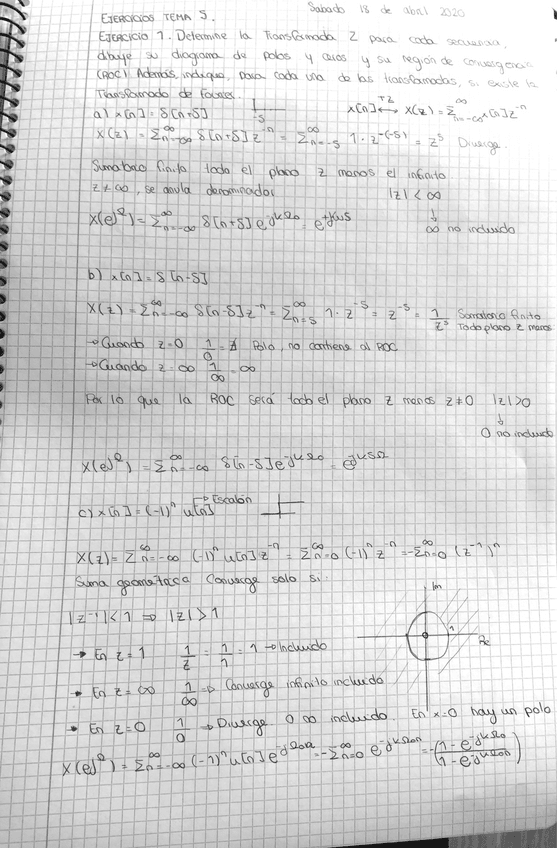 Sabado 18 de abril 2020
EJERCICIOS TEMA 5.
EJERCICIO 1. Determine la Transformada Z para cada secuencia,
dibuje su diagrama de polos y ceros y su region de convergencia
(ROC) Además, indique, para cada una de las transformadas, si existe la
Transformada de Fourier.
a) x[n] = δ[n+5] -5 x[n] ⟷TZ X(z) = Σ_{n=-∞}^∞ x[n] z^{-n}
X(z) = Σ_{n=-∞}^∞ δ[n+5] z^{-n} = Σ_{n=-5}^∞ 1 · z^{-(-5)} = z^5 Diverge.
Sumatorio finito todo el plano z menos el infinito
z ≠ ∞, se anula denominador |z| < ∞
↓
∞ no incluido
X(e^{jΩ}) = Σ_{n=-∞}^∞ δ[n+5] e^{jkΩ0} = e^{+jkΩ5}
b) x[n] = δ[n-5]
X(z) = Σ_{n=-∞}^∞ δ[n-5] z^{-n} = Σ_{n=5}^∞ 1 · z^{-5} = z^{-5} = 1/z^5 Sumatorio finito
Todo plano z menos
→ Cuando z=0 1/0 = ∄ Polo, no contiene al ROC
→ Cuando z=∞ 1/∞ = ∞
Por lo que la ROC será todo el plano z menos z≠0 |z|>0
↓
0 no incluido
X(e^{jΩ}) = Σ_{n=-∞}^∞ δ[n-5] e^{jkΩ0} = e^{jk5Ω}
c) x[n] = (-1)^n u[n] → Escalón
X(z) = Σ_{n=-∞}^∞ (-1)^n u[n] z^{-n} = Σ_{n=0}^∞ (-1)^n z^{-n} = -Σ_{n=0}^∞ (z^{-1})^n
Suma geometrica Converge solo si: Im
|z^{-1}| < 1 ⇒ |z| > 1
1
Re
→ En z=1 1/z = 1/1 = 1 → Incluido
• En z=∞ 1/∞ ⇒ Converge infinito incluido
→ En z=0 1/0 → Diverge 0 ∞ incluido. En x=0 hay un polo
X(e^{jΩ}) = Σ_{n=-∞}^∞ (-1)^n u[n] e^{jΩ0n} = -Σ_{n=0}^∞ e^{-jkΩ0n} = -((1-e^{-jkΩ0})/(1-e^{-jkΩ0n}))